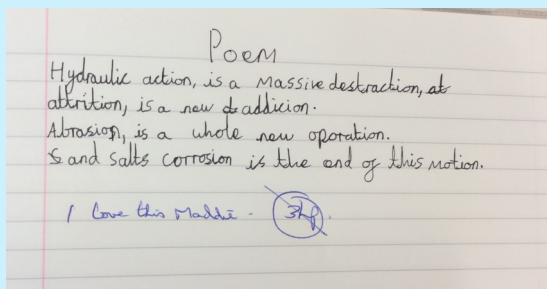 Poem
Hydraulic action, is a massive destraction, at
attrition, is a new addicion.
Abrasion, is a whole new oporation.
and salts corrosion is the end of this motion.
I love this Maddi -